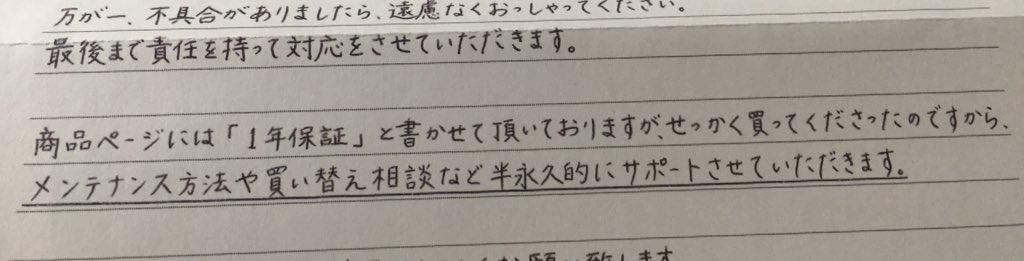 万が一、不具合がありましたら、遠慮なくおっしゃってください。
最後まで責任を持って対応をさせていただきます。
商品ページには「1年保証」と書かせて頂いておりますが、せっかく買ってくださったのですから、
メンテナンス方法や買い替え相談など半永久的にサポートさせていただきます。
お願い致します